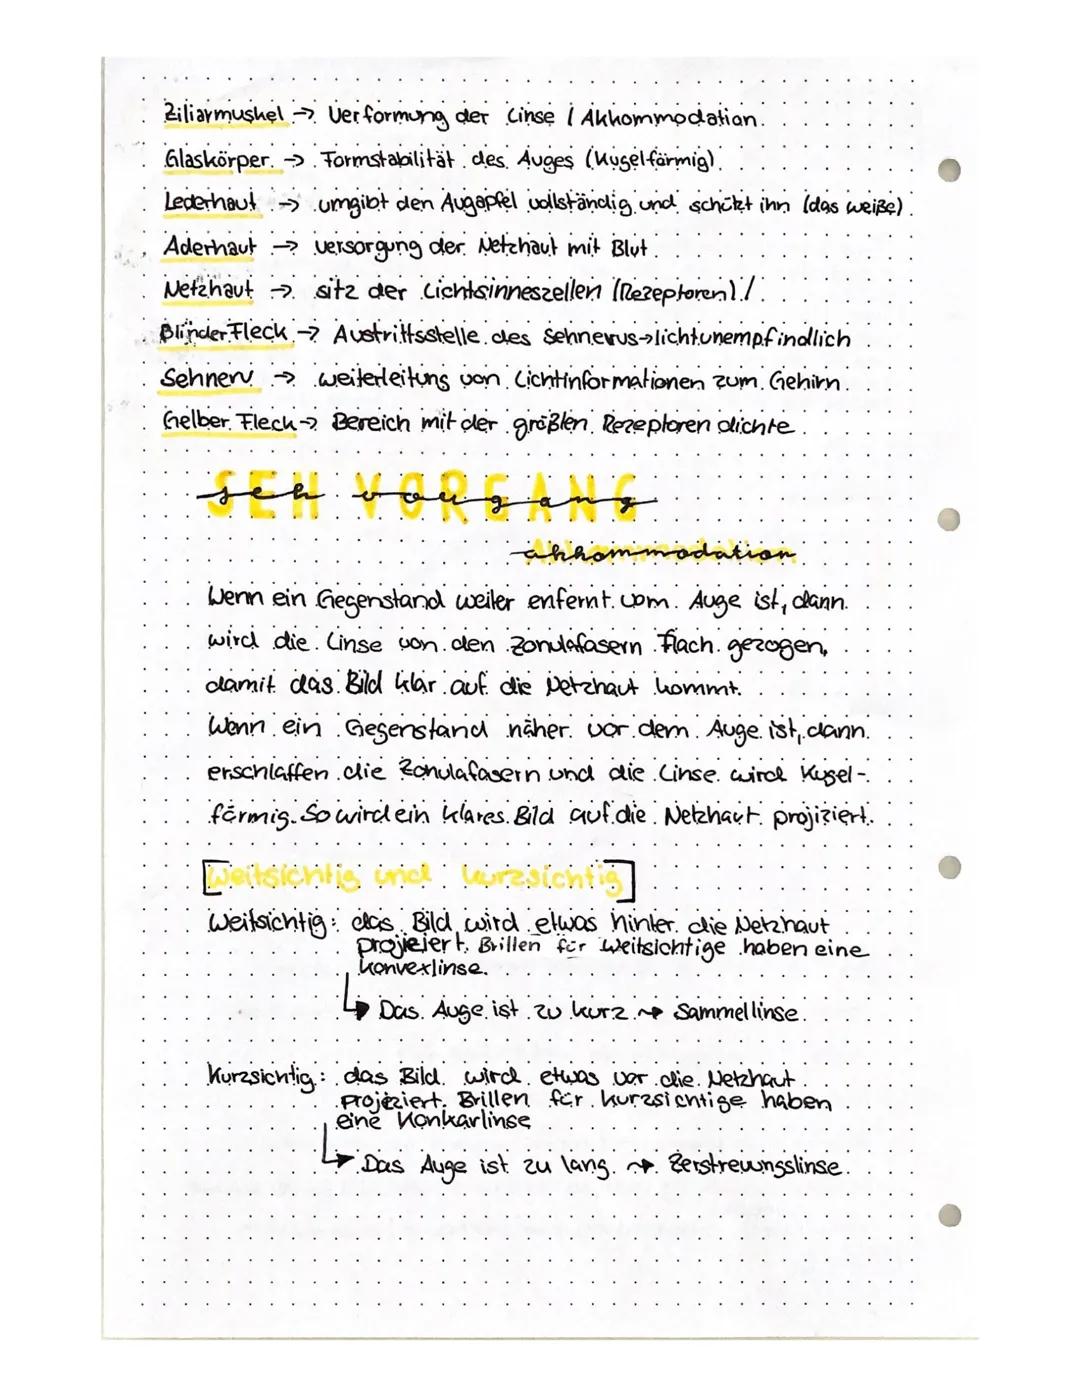 Ziliarmuskel → Verformung der Linse / Akkommodation.
Glaskörper → Formstabilität des Auges (Kugelförmig)
Lederhaut → umgibt den Augapfel vollständig und schützt ihn (das weiße)
Aderhaut → versorgung der Netzhaut mit Blut
Netzhaut → sitz der Lichtsinneszellen (Rezeptoren) /
Blinder Fleck → Austrittsstelle des Sehnervs → lichtunempfindlich
Sehnerv → weiterleitung von Lichtinformationen zum Gehirn
Gelber Fleck → Bereich mit der größten Rezeptoren dichte
SEH VORGANG
akkommodation
Wenn ein Gegenstand weiter enfernt vom Auge ist, dann
wird die Linse von den Zonulafasern flach gezogen,
damit das Bild klar auf die Netzhaut kommt.
Wenn ein Gegenstand näher vor dem Auge ist, dann
erschlaffen die Zonulafasern und die Linse wird Kugel-
förmig. So wird ein klares Bild auf die Netzhaut projiziert.
[Weitsichtig und kurzsichtig]
Weitsichtig: das Bild wird etwas hinter die Netzhaut
projieiert. Brillen für weitsichtige haben eine
konvexlinse.
↳ Das Auge ist zu kurz → Sammellinse.
Kurzsichtig: das Bild wird etwas vor die Netzhaut
projeziert. Brillen für kurzsichtige haben
eine Konkavlinse
↳ Das Auge ist zu lang → Zerstreuungslinse.